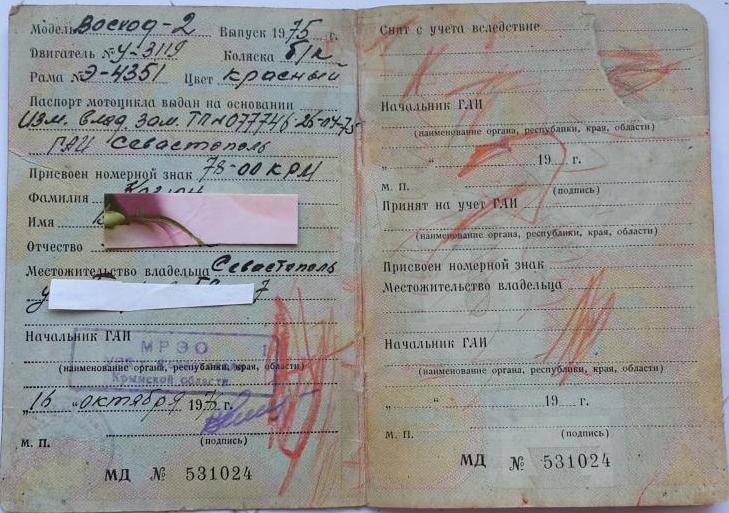 Модель Восход-2 Выпуск 1975 г.
Двигатель № У-3119 Коляска б/к
Рама № Э-4351 Цвет красный
Паспорт мотоцикла выдан на основании
Изм. влад. зам. ТП № 077746 26-04-75
ГАИ Севастополь
Присвоен номерной знак 78-00 КРМ
Фамилия
Имя
Отчество
Местожительство владельца Севастополь
Начальник ГАИ
МРЭО
Крымской области
(наименование органа, республики, края, области)
„16 “ октября 197 г.
М. П. (подпись)
МД № 531024
Снят с учета вследствие
Начальник ГАИ
(наименование органа, республики, края, области)
„ “ 19 г.
М. П. (подпись)
Принят на учет ГАИ
(наименование органа, республики, края, области)
Присвоен номерной знак
Местожительство владельца
Начальник ГАИ
(наименование органа, республики, края, области)
„ “ 19 г.
М. П. (подпись)
МД № 531024